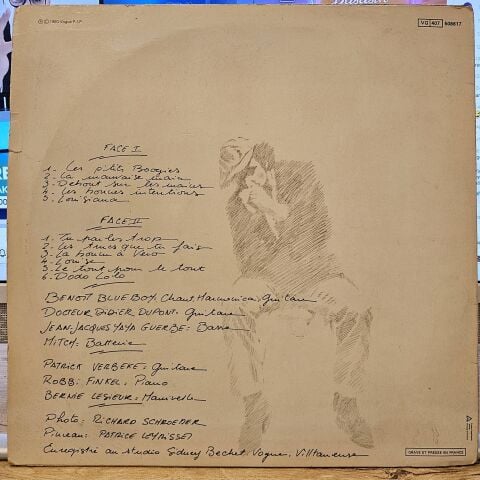 ℗ © 1980 Vogue P.I.P.
VG 407 508617
FACE I
1 - Les p'tits Boogies
2 - La mauvaise main
3 - Debout sur les mains
4 - Les bonnes intentions
5 - Louisiana
FACE II
1 - Tu parles trop
2 - Les trucs que tu fais
3 - La boum à Véro
4 - Louise
5 - Le tout pour le tout
6 - Dodo Lolo
BENOÎT BLUE BOY: Chant Harmonica, Guitare
DOCTEUR DIDIER DUPONT: Guitare
JEAN-JACQUES YAYA GUERBE: Basse
MITCH: Batterie
PATRICK VERBEKE: Guitare
ROBBI FINKEL: Piano
BERNIE LESIEUR: Manivelle
Photo: RICHARD SCHROEDER
Pinceau: PATRICE LEYRISSET
Enregistré au studio Sidney Bechet. Vogue, Villetaneuse
GRAVE ET PRESSE EN FRANCE